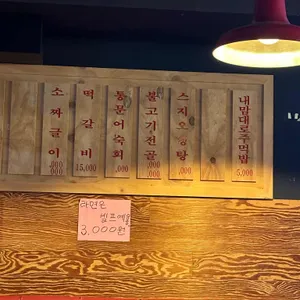 소짜글이
,000
,000
떡갈비
15,000
통문어숙회
,000
불고기전골
,000
스지오뎅탕
,000
내맘대로주먹밥
5,000
라면은
셀프예요
3,000원